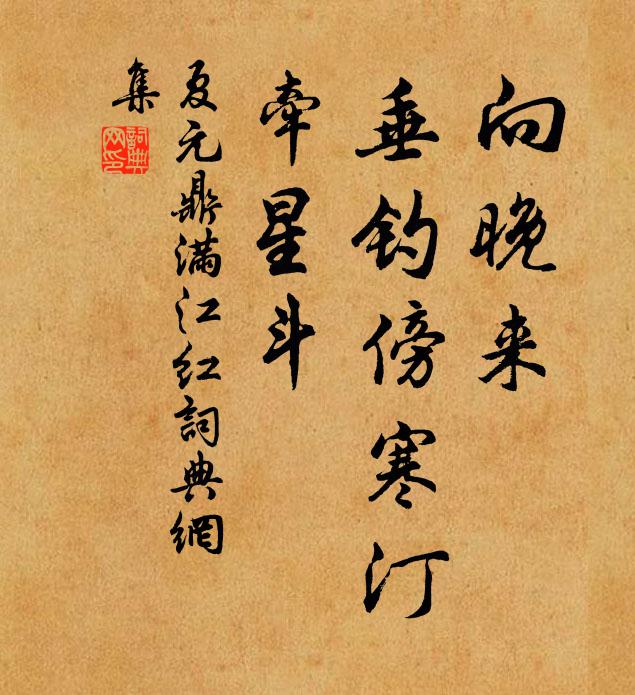 向晚来
垂钓傍寒汀
牵星斗
夏元鼎满江红詞典網
集
詞典
网印